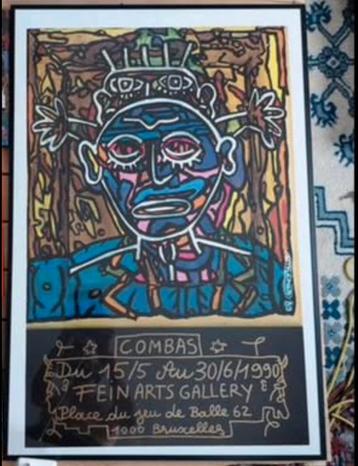 COMBAS
Du 15/5 Au 30/6/1990
FEIN ARTS GALLERY
Place du jeu de Balle 62
1000 Bruxelles